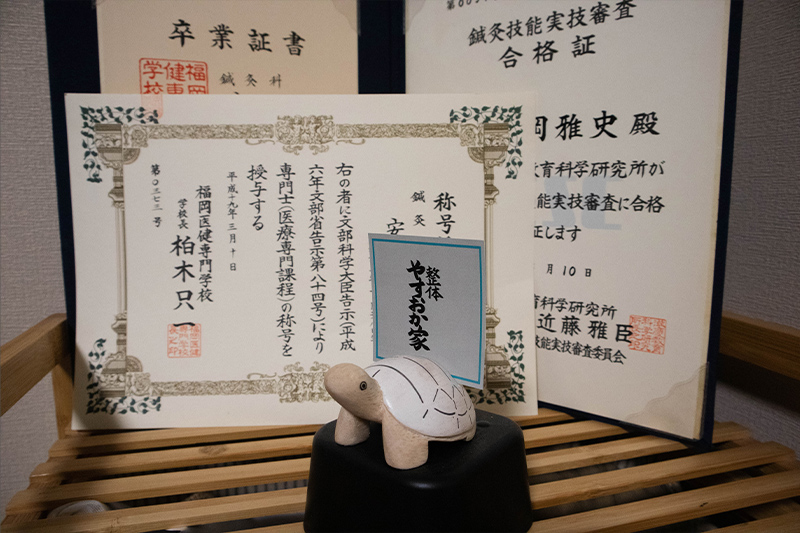 卒業証書
鍼灸科
福岡
健専
学校
鍼灸技能実技審査
合格証
岡雅史殿
教育科学研究所が
能実技審査に合格
証します
月10日
育科学研究所
近藤雅臣
技能実技審査委員会
称号
鍼灸
安
右の者に文部科学大臣告示(平成
六年文部省告示第八十四号)により
専門士(医療専門課程)の称号を
授与する
平成十九年三月十日
第〇三七三号
福岡医健専門学校
学校長 柏木只一
整体
やすおか家